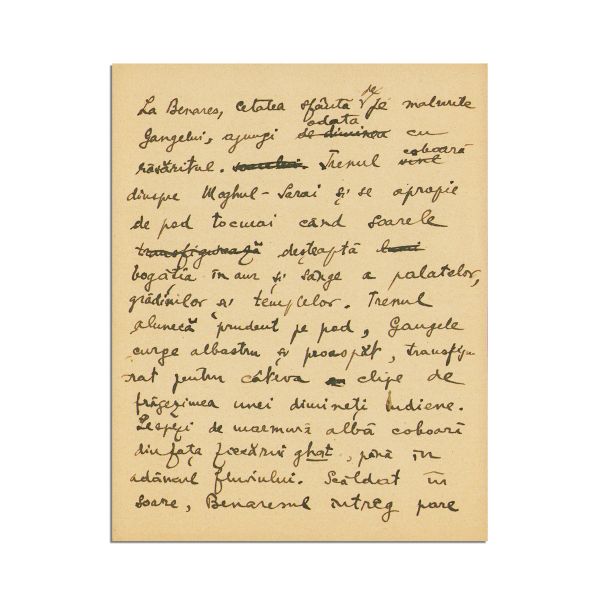 La Benares, cetatea sfântă de pe malurile
Gangelui, ajungi de diminea odată cu
răsăritul. soarelui. Trenul vine coboară
dinspre Moghul-Sarai și se apropie
de pod tocmai când soarele
transfigurează deșteaptă
bogăția în aur și sânge a palatelor,
grădinilor și templelor. Trenul
alunecă prudent pe pod, Gangele
curge albastru și proaspăt, transfigu
rat pentru câteva clipe de
frăgezimea unei dimineți indiene.
Lespezi de marmură albă coboară
din fața fiecărui ghat, până în
adâncul fluviului. Scăldat în
soare, Benaresul întreg pare